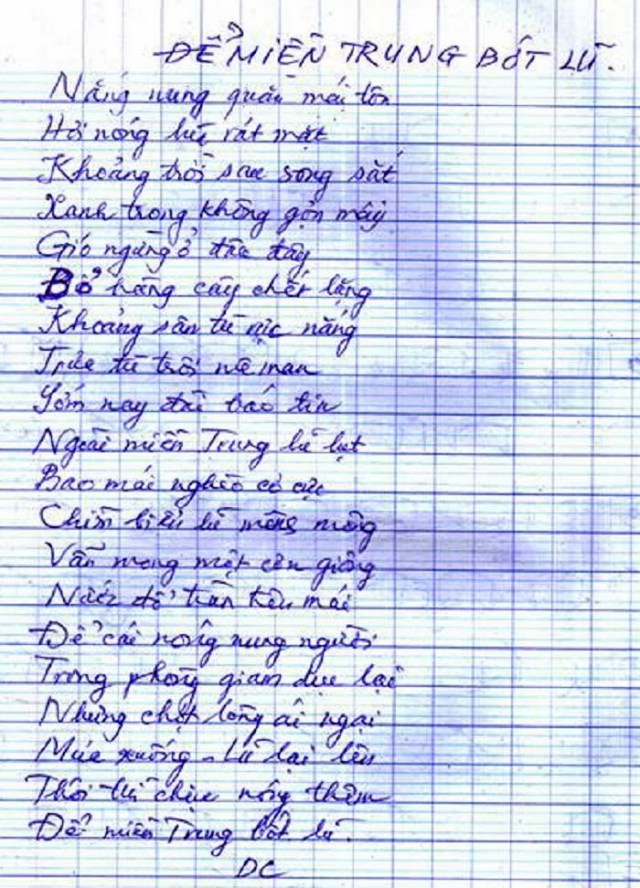 ĐỂ MIỀN TRUNG BỚT LŨ.
Nắng nung quằn mái tôn
Hơi nóng hừ rát mặt
Khoảng trời sau song sắt
Xanh trong không gợn mây
Gió ngừng ở đâu đây
Bỏ hàng cây chết lặng
Khoảng sân tù rực nắng
Trưa tù trôi
Sớm nay đài báo tin
Ngoài miền Trung lũ lụt
Bao mái nghèo cơ cực
Chìm biển lũ mênh mông
Vẫn mong một cơn giông
Nước đổ tràn trên mái
Để cái nóng nung người
Trong phòng giam dịu lại
Nhưng chợt lòng ái ngại
Mưa xuống - Lũ lại lên
Thôi thì chịu nóng thêm
Để miền Trung bớt lũ.
DC